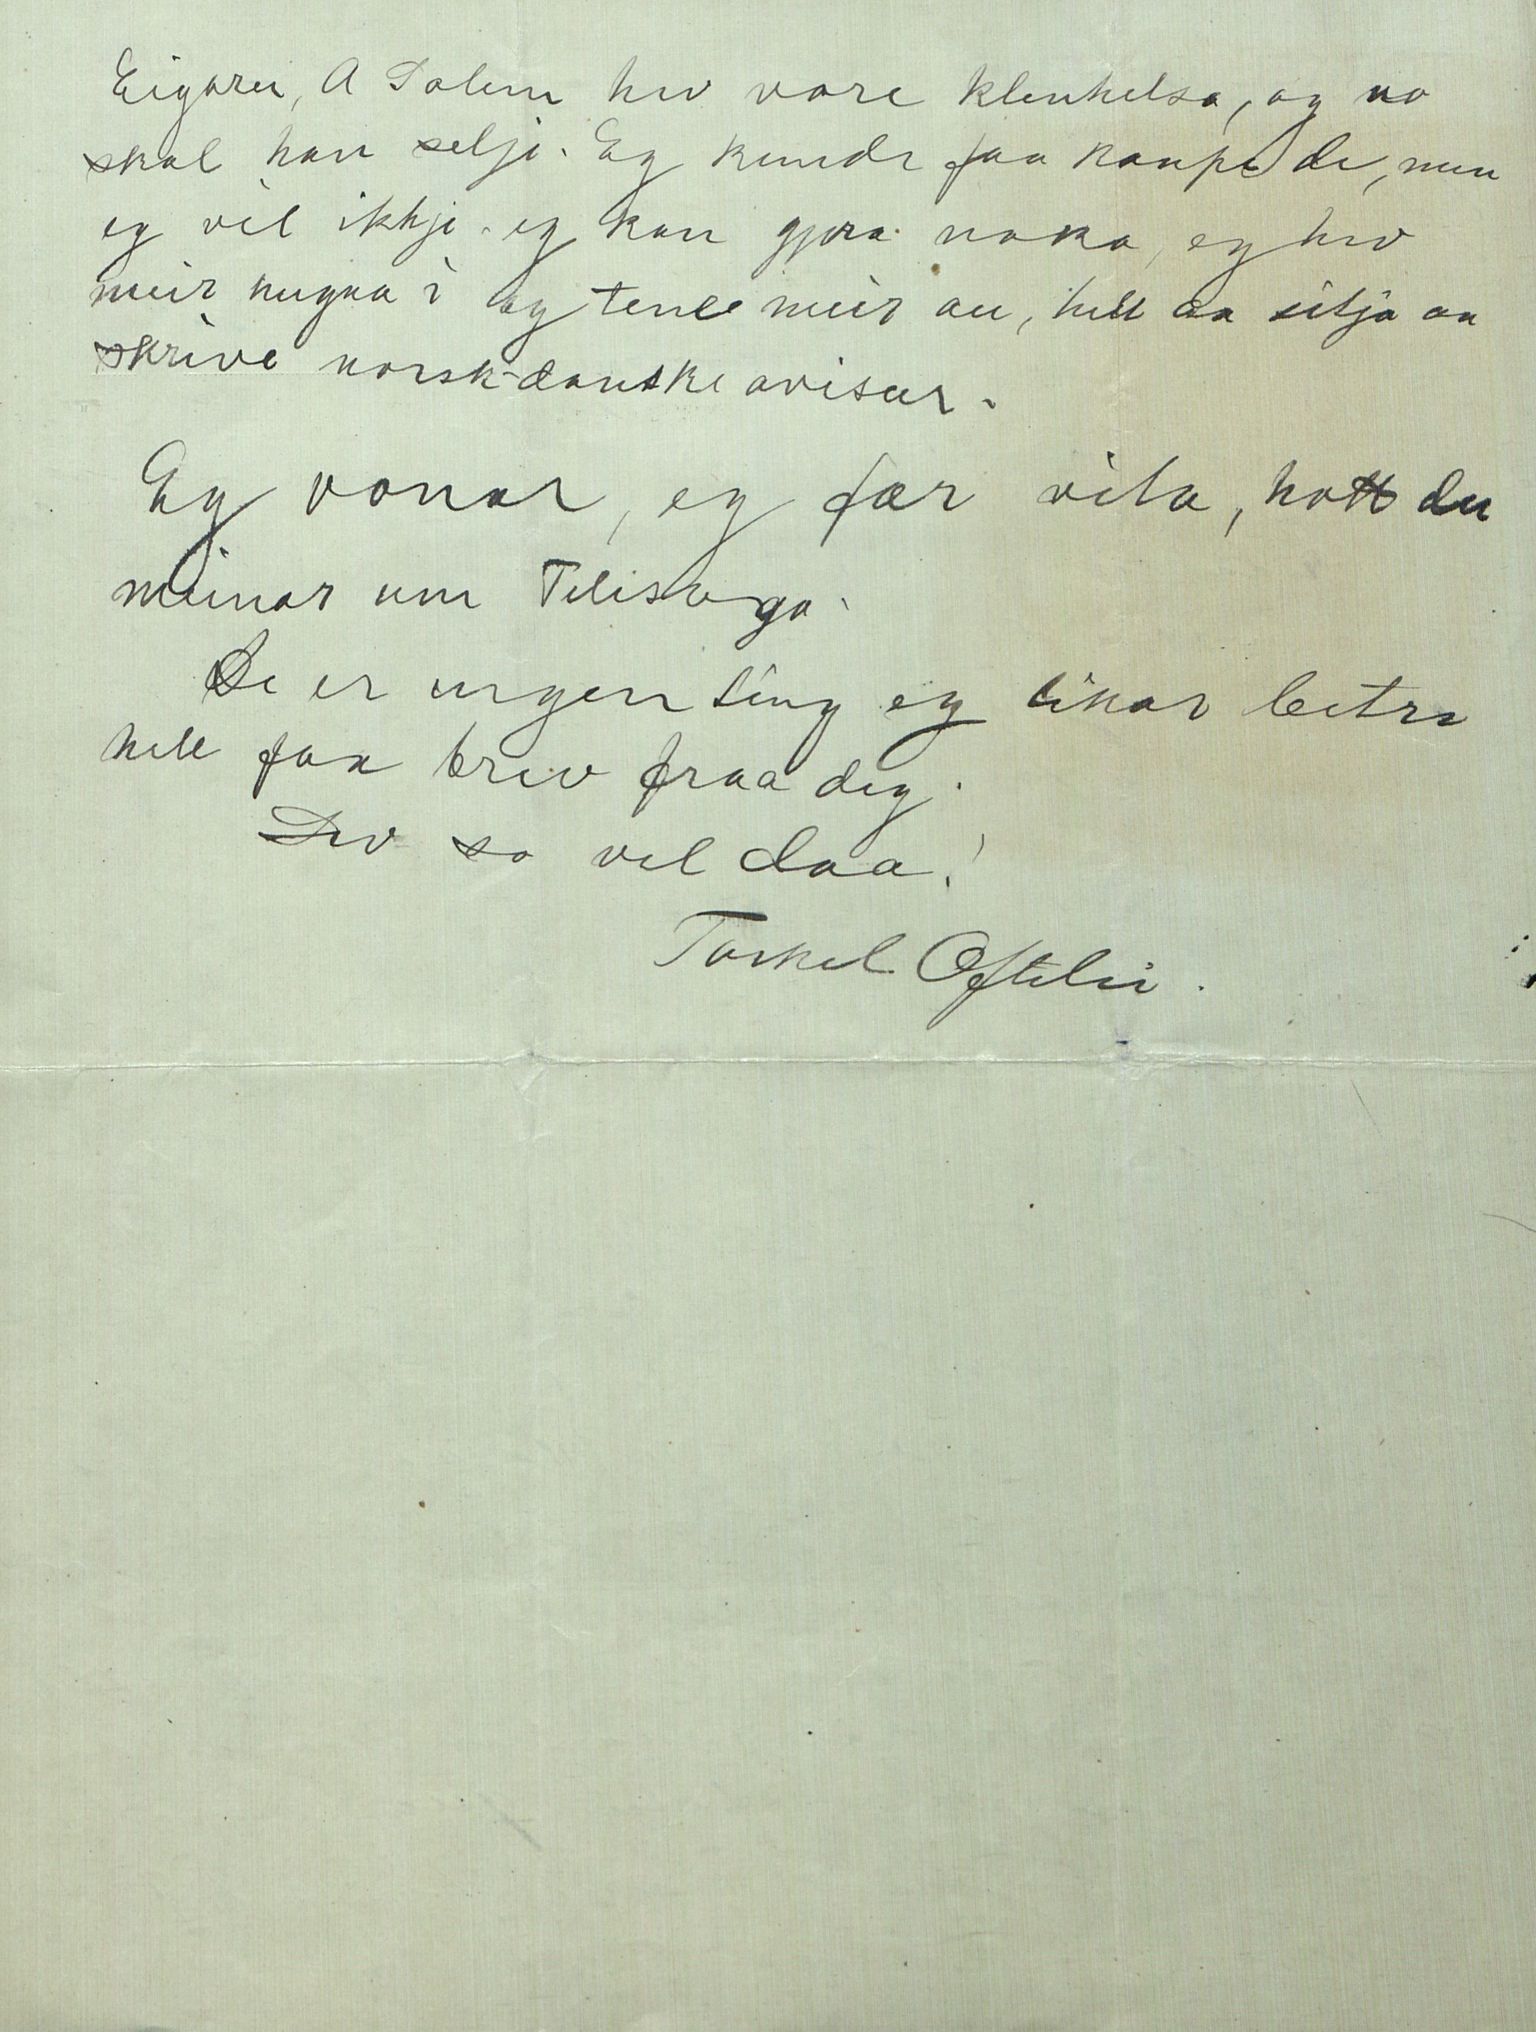 Eigaren, A Dalen hev vore klenhelsa, og no
skal han selje. Eg kunde faa kaupe de, men
eg vil ikkje. eg kan gjera noko, eg hev
meir hugna i og tene meir au, hell aa sitja aa
skrive norsk-danske avisur.
Eg vonar, eg fær vita, hott du
meinar um Telesoga.
De er ingen ting eg likar betre
hell faa brev fraa deg.
Lev so vel daa!
Torkel Oftelie.